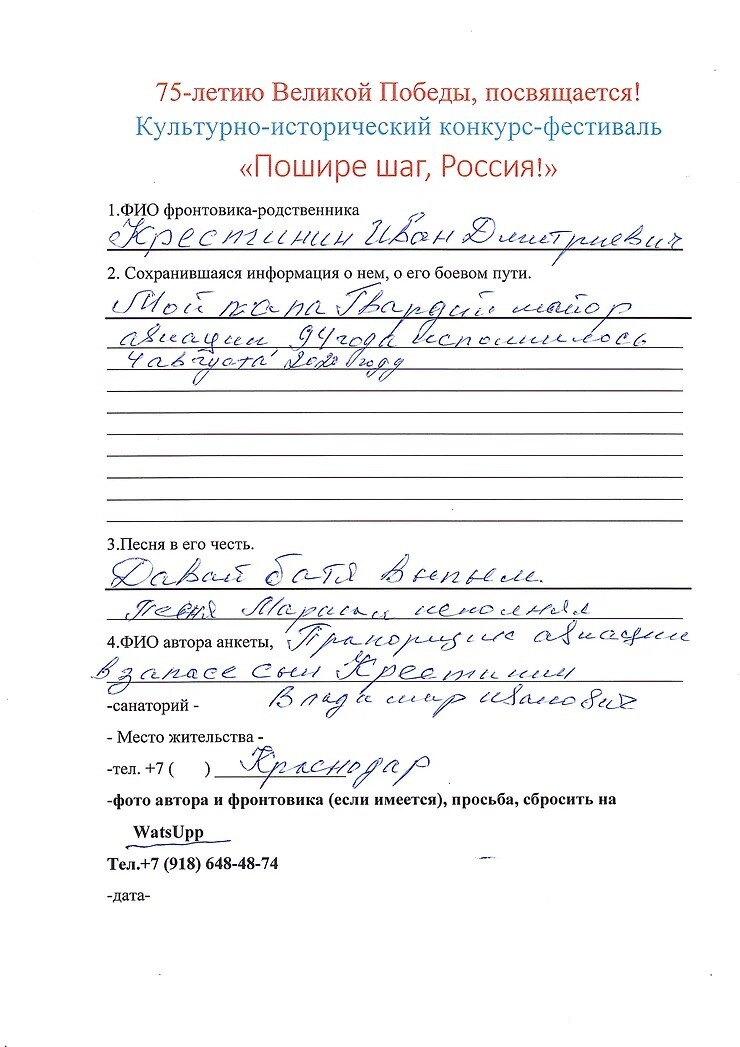 75-летию Великой Победы, посвящается!
Культурно-исторический конкурс-фестиваль
«Пошире шаг, Россия!»
1.ФИО фронтовика-родственника
Крестинин Иван Дмитриевич
2. Сохранившаяся информация о нем, о его боевом пути.
Мой папа Гвардии майор
авиации 94 года исполнилось
4 августа 2020 году
3.Песня в его честь.
Давай батя выпьем.
Песня Марасы исполнял
4.ФИО автора анкеты, Прапорщик авиации
в запасе сын Крестинин
-санаторий - Владимир Иванович
- Место жительства -
-тел. +7 ( ) Краснодар
-фото автора и фронтовика (если имеется), просьба, сбросить на
WatsUpp
Тел.+7 (918) 648-48-74
-дата-